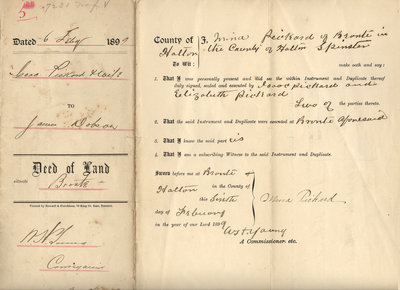 Dated 6 Feby 1899
Isaac Pickard & wife
TO
James Dobson
Deed of Land
situate
Bronte
County of
Halton
To Wit:
I, Mina Pickard of Bronte in
the County of Halton Spinster
make oath and say:
1. That I was personally present and did see the within Instrument and Duplicate thereof
duly signed, sealed and executed by Isaac Pickard and
Elizabeth Pickard
two of the parties thereto.
2. That the said Instrument and Duplicate were executed at Bronte aforesaid
3. That I know the said parties
4. That I am a subscribing Witness to the said Instrument and Duplicate.
Sworn before me at Bronte
in the County of
Halton
this Sixth
day of February
in the year of our Lord 1899
Mina Pickard
A Commissioner, etc.